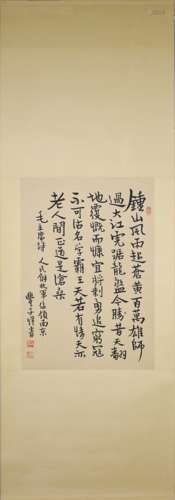 鍾山風雨起蒼黃百萬雄師
過大江虎踞龍盤今勝昔天翻
地覆慨而慷宜將剩勇追窮寇
不可沽名學霸王天若有情天亦
老人間正道是滄桑
毛主席詩 人民解放軍佔領南京
豐子愷書